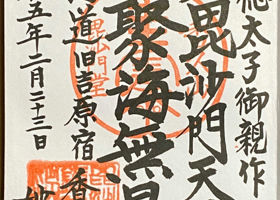 徳太子御親作
毘沙門天
聚海無量
道旧吉原宿 香
五年二月二十三日
妙